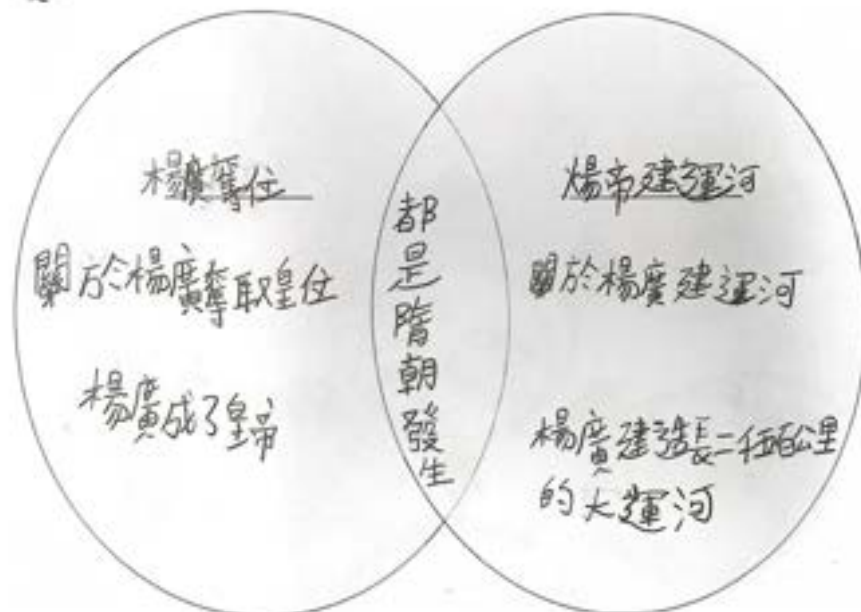 楊廣奪位
關於楊廣奪取皇位
楊廣成了皇帝
都是隋朝發生
煬帝建運河
關於楊廣建運河
楊廣建造長二千五百公里
的大運河